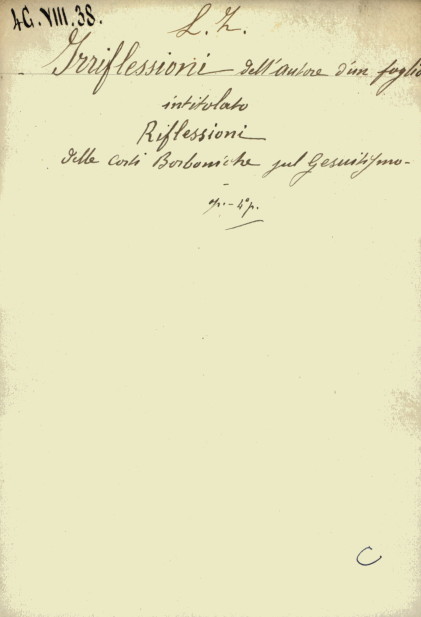 4G.VIII.38.
L. Z.
Irriflessioni dell'autore d'un foglio
intitolato
Riflessioni
delle Corti Borboniche sul Gesuitismo-
op. - 4° p.
C